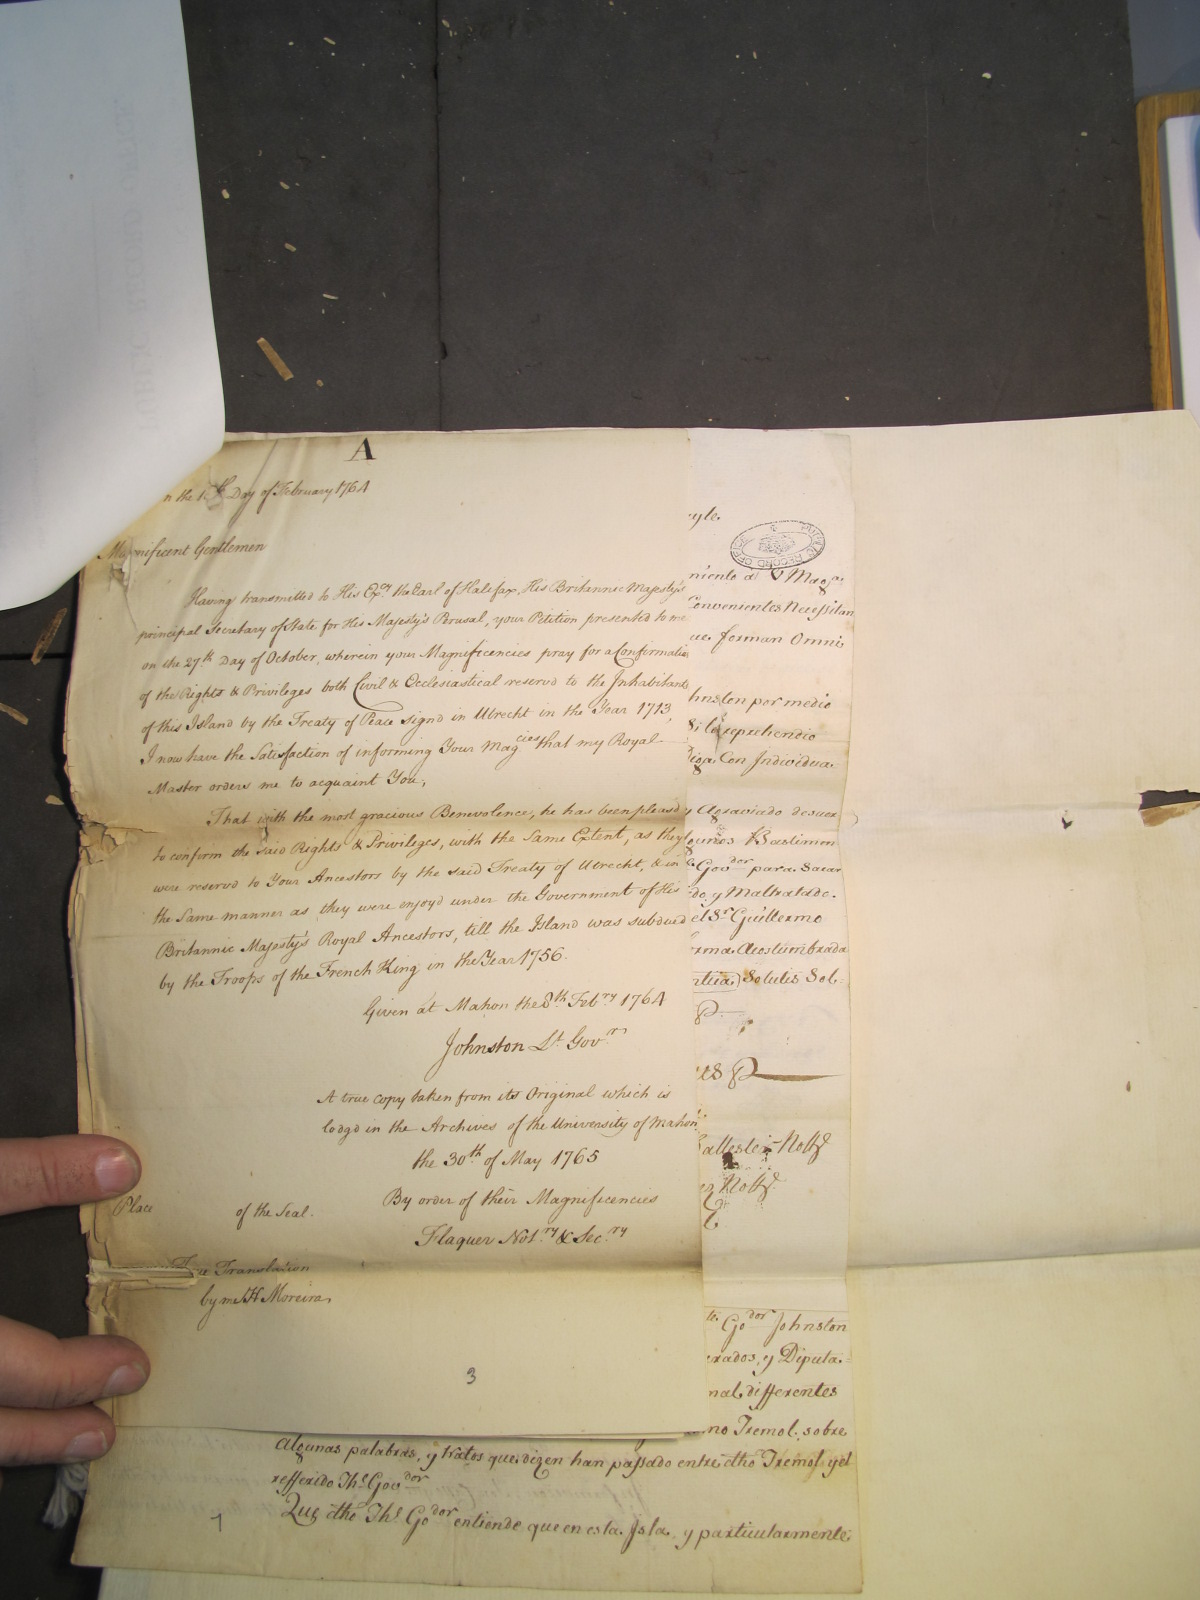 A
on the 1 th Day of February 1764
Magnificent Gentlemen
Having transmitted to His Excy the Earl of Halifax, His Britannic Majesty's
principal Secretary of State for His Majesty's Perusal, your Petition presented to me
on the 27th Day of October, wherein your Magnificencies pray for a Confirmation
of the Rights & Privileges both Civil & Ecclesiastical reservd to the Inhabitants
of this Island by the Treaty of Peace signd in Utrecht in the Year 1713,
I now have the Satisfaction of informing Your Magcies that my Royal
Master orders me to acquaint You,
That with the most gracious Benevolence, he has been pleasd
to confirm the said Rights & Privileges, with the Same Extent, as they
were reservd to Your Ancestors by the said Treaty of Utrecht, & in
the Same manner as they were enjoyd under the Government of His
Britannic Majesty's Royal Ancestors, till the Island was subdued
by the Troops of the French King in the Year 1756.
Given at Mahon the 8th Febry 1764
Johnston Lt Govr
A true copy taken from its Original which is
lodgd in the Archives of the University of Mahon
the 30th of May 1765
By order of their Magnificencies
Place of the Seal.
Flaquer Notry & Secry
True Translation
by me H Moreira
3
PUBLIC RECORD OFFICE
niento a V Mags
Convenientes Necessitan
ue forman Omni
hnston por medio
reprehendio
Con Individua-
y Agraviado de suer
Bastimen
Govdor para Sacar
do, y Maltratado.
el Sr Guillermo
rma Acostumbrada
Solutis Sol-
Notts
Notts
te Godor Johnston
rados, y Diputa-
nal, differentes
mo Tremol. sobre
algunas palabras, y tratos que dizen han passado entre dho Tremol y el
refferido Ths Govdor
Que dho Ths Godor entiende que en esta Isla, y particularmente
7